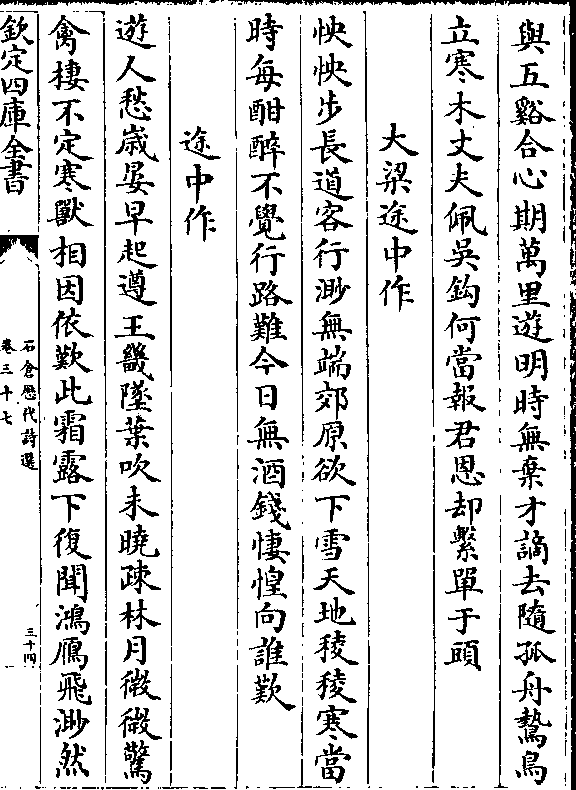 與五谿合心期萬里遊明時無棄才謫去隨孤舟鷙鳥
立寒木丈夫佩吳鈎何當報君恩却繫單于頭
大梁途中作
怏怏步長道客行渺無端郊原欲下雪天地稜稜寒當
時每酣醉不覺行路難今日無酒錢悽惶向誰歎
途中作
遊人愁嵗晏早起遵王畿墜葉吹未曉疎林月微微驚
禽棲不定寒獸相因依歎此霜露下復聞鴻鴈飛渺然
欽定四庫全書
石倉歴代詩選
卷三十七
三十四